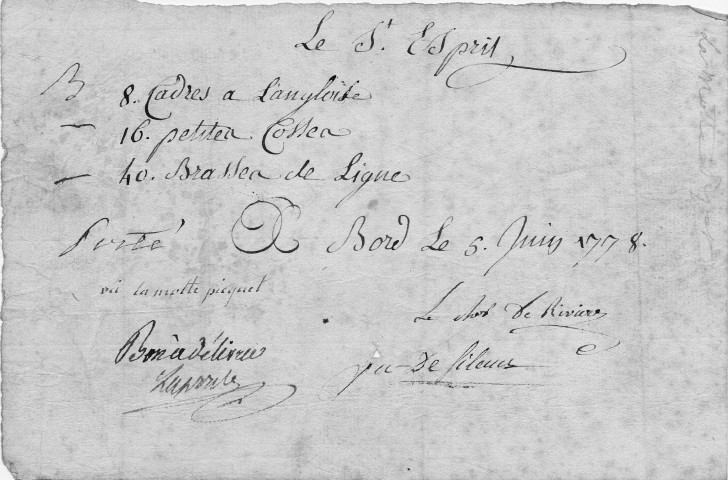 Le St. Esprit
B 8. Cadres a L'angloise
16. petites Cosses
40. Brasses de Ligne
Porté A Bord Le 5. Juin 1778.
vû Lamotte picquet
Le cher De Riviere
Bon à délivrer
vu
Laporte